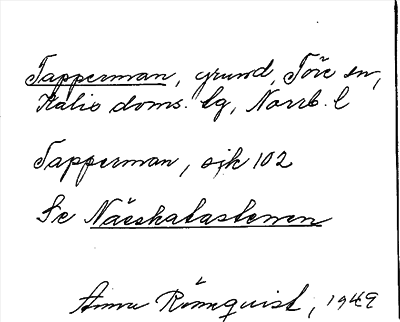 Tapperman, grund, Töre sn,
Kalix doms. lg, Norrb. l
Tapperman, sjk 102
Se Näcskatastenen
Anna Rönnquist, 1949